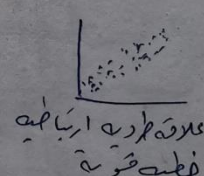 علاقة طردية ارتباطية
خطية قوية